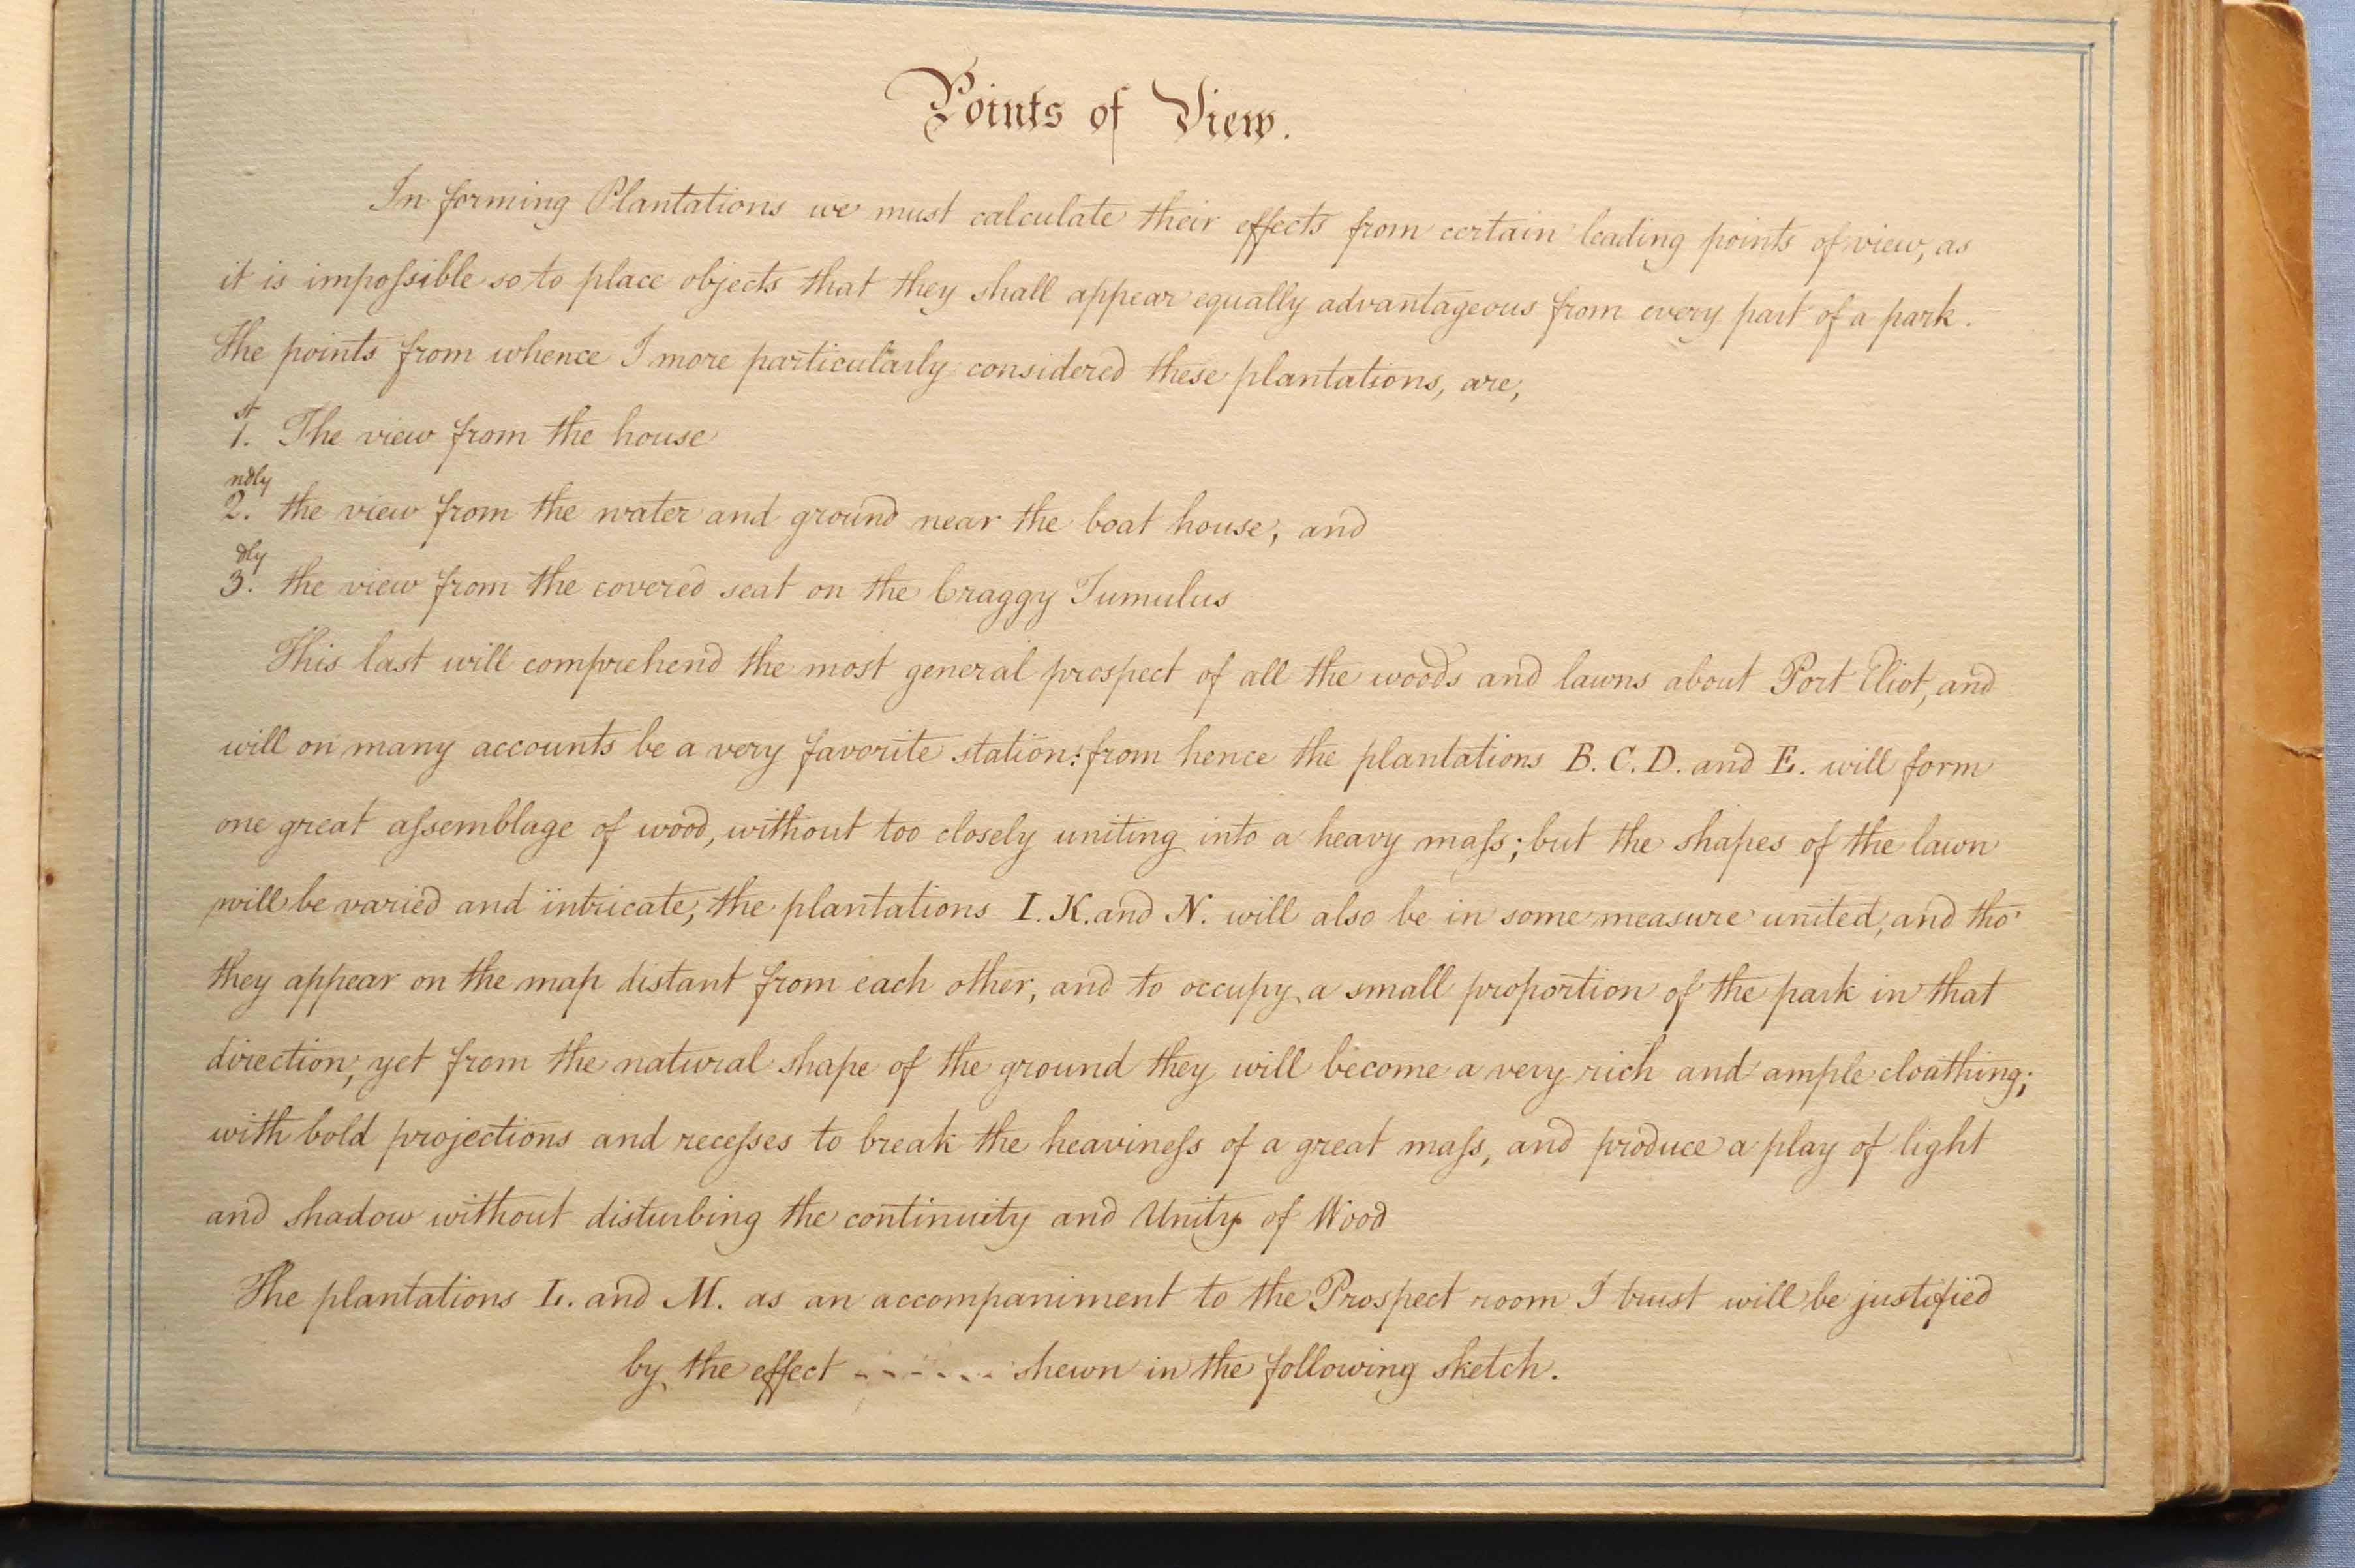 Points of View.
In forming Plantations we must calculate their effects from certain leading points of view, as
it is impoſsible so to place objects that they shall appear equally advantageous from every part of a park.
The points from whence I more particularly considered these plantations, are,
1.st The view from the house
2.ndly the view from the water and ground near the boat house, and
3.dly the view from the covered seat on the Craggy Tumulus
This last will comprehend the most general prospect of all the woods and lawns about Port Eliot, and
will on many accounts be a very favorite station: from hence the plantations B. C. D. and E. will form
one great aſsemblage of wood, without too closely uniting into a heavy maſs; but the shapes of the lawn
will be varied and intricate, the plantations I. K. and N. will also be in some measure united, and tho'
they appear on the map distant from each other, and to occupy a small proportion of the park in that
direction, yet from the natural shape of the ground they will become a very rich and ample cloathing;
with bold projections and receſses to break the heavineſs of a great maſs, and produce a play of light
and shadow without disturbing the continuity and Unity of Wood
The plantations L. and M. as an accompaniment to the Prospect room I trust will be justified
by the effect - - - - - shewn in the following sketch.